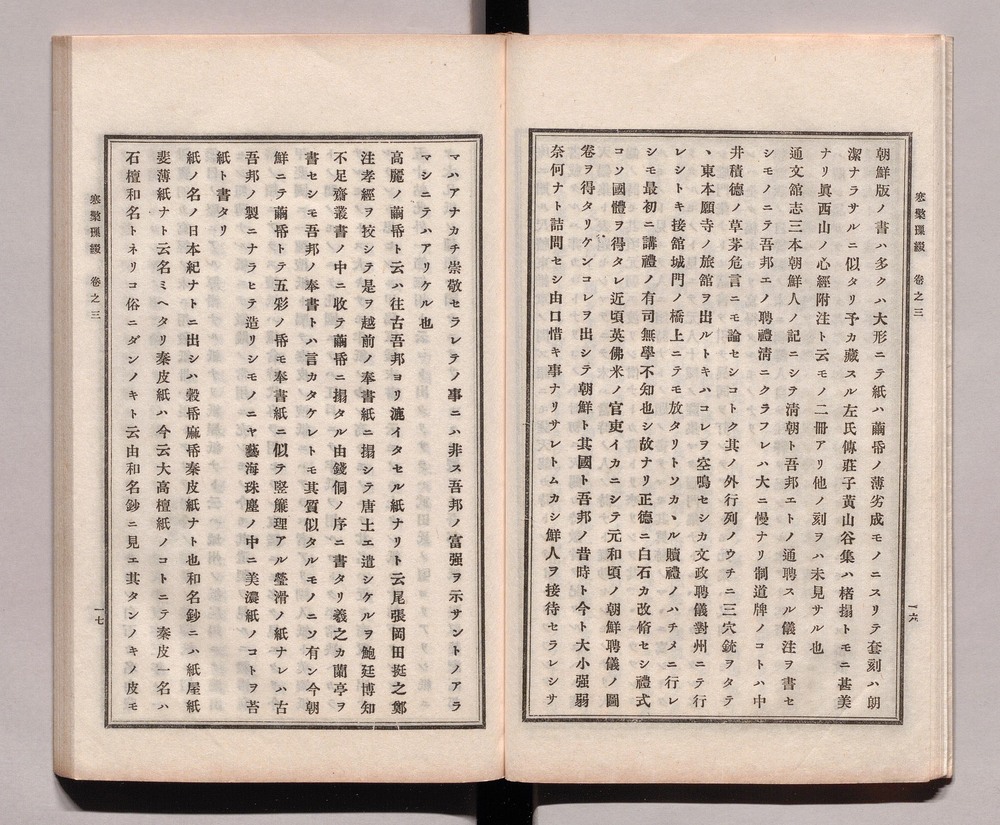 寒檠璅綴　卷之三
一六
朝鮮版ノ書ハ多クハ大形ニテ紙ハ繭帋ノ薄劣成モノニスリテ套刻ハ朗
潔ナラサルニ似タリ予カ藏スル左氏傳莊子黃山谷集ハ楮搨トモニ甚美
ナリ眞西山ノ心經附注ト云モノ二冊アリ他ノ刻ヲハ未見サル也
通文館志三本朝鮮人ノ記ニシテ淸朝ト吾邦エトノ通聘スル儀注ヲ書セ
シモノニテ吾邦エノ聘禮淸ニクラフレハ大ニ慢ナリ制道牌ノコトハ中
井積德ノ草茅危言ニモ論セシコトク其ノ外行列ノウチニ三穴銃ヲタテ
丶東本願寺ノ旅館ヲ出ルトキハコレヲ空鳴セシカ文政聘儀對州ニテ行
レシトキ接館城門ノ橋上ニテモ放タリトソカ丶ル贖禮ノハチメニ行レ
シモ最初ニ講禮ノ有司無學不知也シ故ナリ正德ニ白石カ改脩セシ禮式
コソ國體ヲ得タレ近頃英佛米ノ官吏イカニシテ元和頃ノ朝鮮聘儀ノ圖
卷ヲ得タリケンコレヲ出シテ朝鮮ト其國ト吾邦ノ昔時ト今ト大小强弱
奈何ナト詰問セシ由口惜キ事ナリサレトムカシ鮮人ヲ接待セラレシサ
マハアナカチ崇敬セラレテノ事ニハ非ス吾邦ノ富强ヲ示サントノアラ
マシニテハアリケル也
高麗ノ繭帋ト云ハ往古吾邦ヨリ漉イタセル紙ナリト云尾張岡田挺之鄭
注孝經ヲ挍シテ是ヲ越前ノ奉書紙ニ搨シテ唐土エ遣シケルヲ鮑廷博知
不足齋叢書ノ中ニ收テ繭帋ニ搨タル由錢侗ノ序ニ書タリ羲之カ蘭亭ヲ
書セシモ吾邦ノ奉書トハ言カタケレトモ其質似タルモノニソ有ン今朝
鮮ニテ繭帋トテ五彩ノ帋モ奉書紙ニ似テ竪簾理アル瑩滑ノ紙ナレハ古
吾邦ノ製ニナラヒテ造リシモノニヤ藝海珠塵ノ中ニ美濃紙ノコトヲ苔
紙ト書タリ
紙ノ名ノ日本紀ナトニ出シハ穀帋麻帋秦皮紙ナト也和名鈔ニハ紙屋紙
斐薄紙ナト云名ミヘタリ秦皮紙ハ今云大高檀紙ノコトニテ秦皮一名ハ
石檀和名トネリコ俗ニダンノキト云由和名鈔ニ見エ其タンノキノ皮モ
寒檠璅綴　卷之三
一七